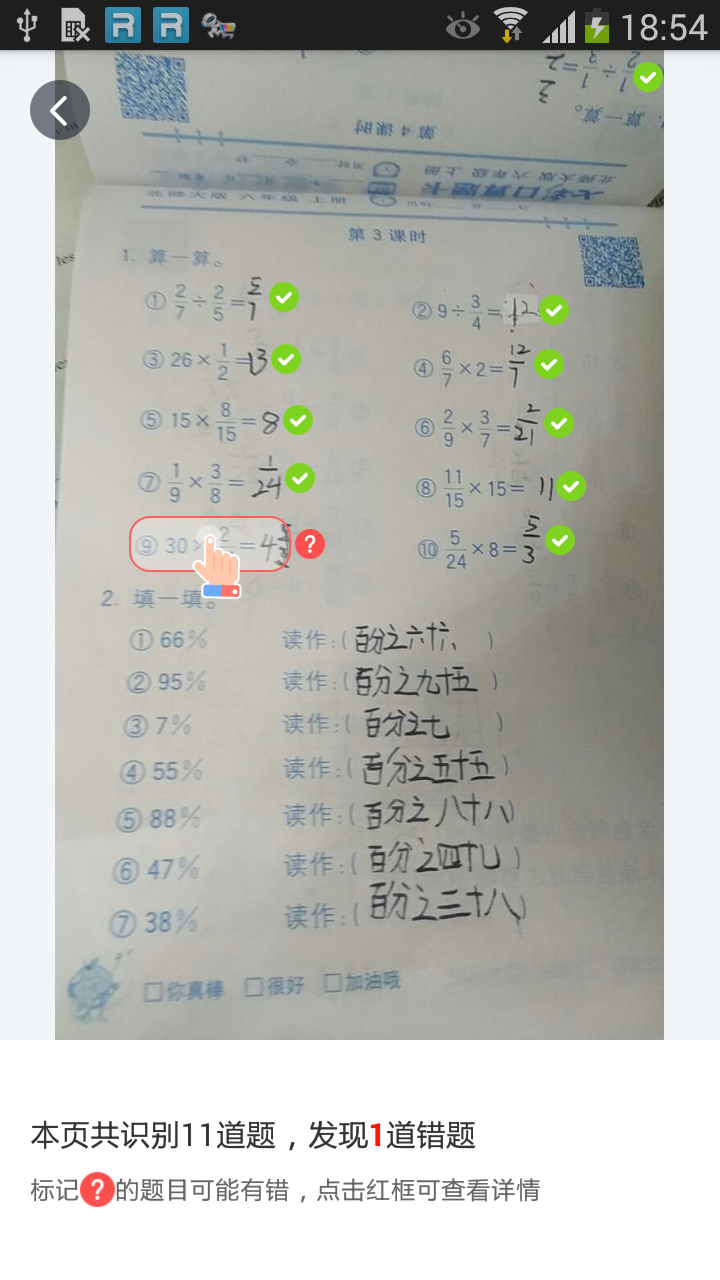 18:54
算一算。
第 4 课时
北师大版 六年级 上册
第 3 课时
1. 算一算。
① 2/7 ÷ 2/5 = 5/7
② 9 ÷ 3/4 = 12
③ 26 × 1/2 = 13
④ 6/7 × 2 = 12/7
⑤ 15 × 8/15 = 8
⑥ 2/9 × 3/7 = 2/21
⑦ 1/9 × 3/8 = 1/24
⑧ 11/15 × 15 = 11
⑨ 30 × =
⑩ 5/24 × 8 = 5/3
2. 填一填。
① 66% 读作:(百分之六十六)
② 95% 读作:(百分之九十五)
③ 7% 读作:(百分之七)
④ 55% 读作:(百分之五十五)
⑤ 88% 读作:(百分之八十八)
⑥ 47% 读作:(百分之四十七)
⑦ 38% 读作:(百分之三十八)
□你真棒 □很好 □加油哦
本页共识别11道题，发现1道错题
标记?的题目可能有错，点击红框可查看详情